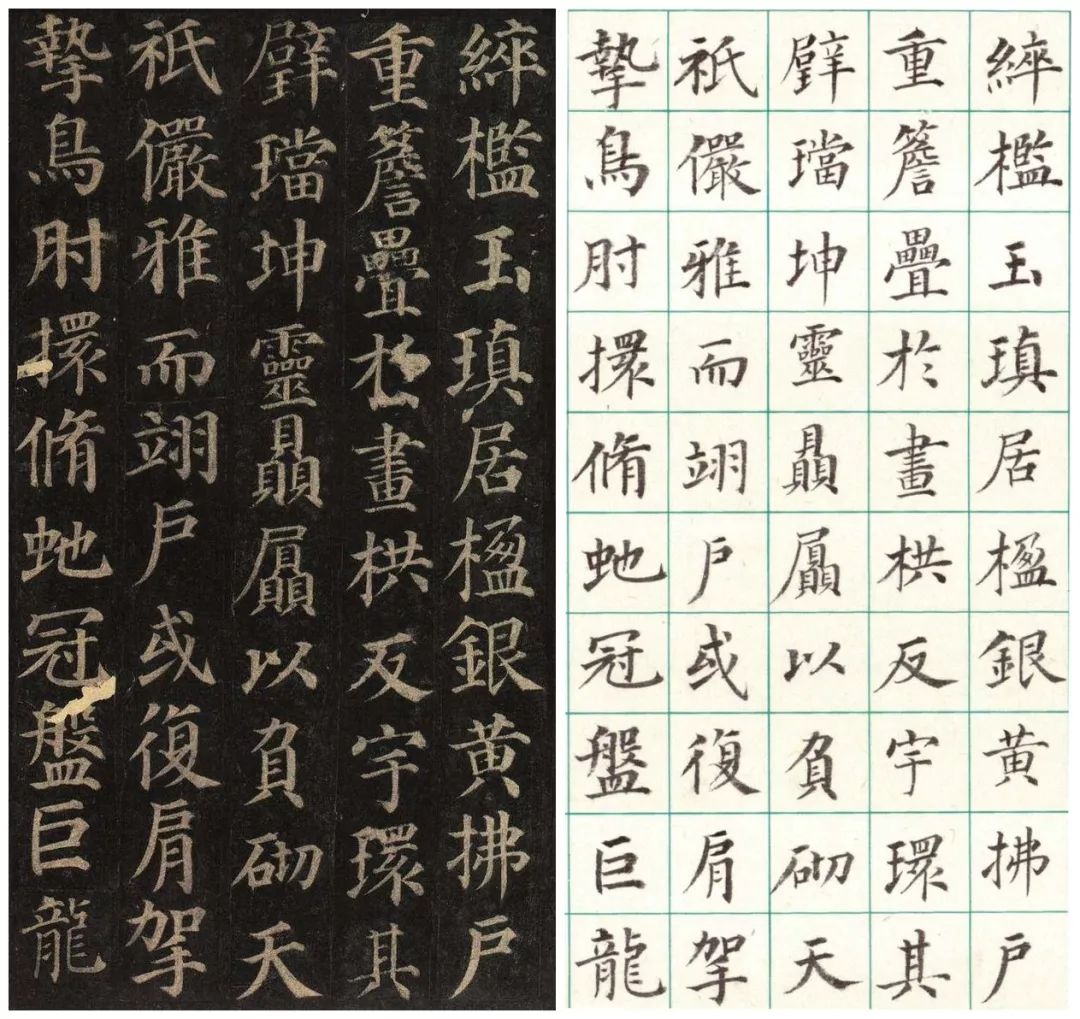 綷檻玉瑱居楹銀黃拂戶
重簷疊於畫栱反宇環其
璧璫坤靈贔屭以負砌天
祇儼雅而翊戶或復肩挐
摯鳥肘擐脩虵冠盤巨龍
綷檻玉瑱居楹銀黃拂戶
重簷疊於畫栱反宇環其
璧璫坤靈贔屭以負砌天
祇儼雅而翊戶或復肩挐
摯鳥肘擐脩虵冠盤巨龍